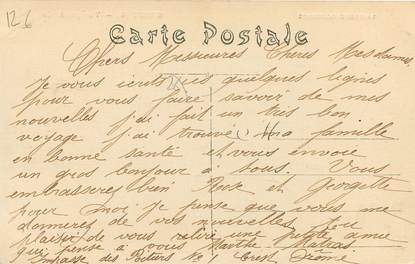 126
Carte Postale
Chers Messieures Cheres Mesdames
Je vous ecrit ces quelques lignes
pour vous faire savoir de mes
nouvelles j'ai fait un tres bon
voyage j'ai trouve ma famille
en bonne santé et vous envoie
un gros bonjour a tous. Vous
embrasserez bien Rose et Georgette
pour moi je pense que vous me
donnerez de vos nouvelles
plaisir de vous relire une petite amie
qui pense a vous Marthe Matras
Impasse des N° 1 Crest Drôme